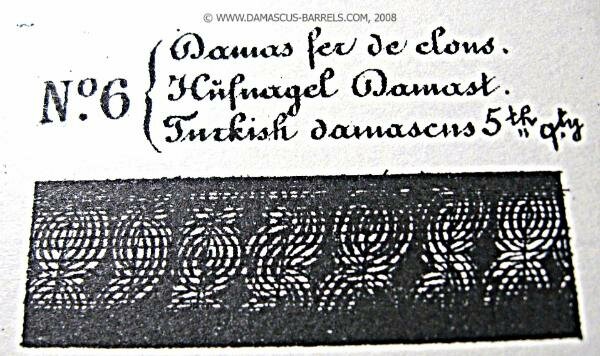 © WWW.DAMASCUS-BARRELS.COM, 2008
Damas fer de clous.
No. 6 Hŭfnagel Damast.
Turkish damascus 5th qty